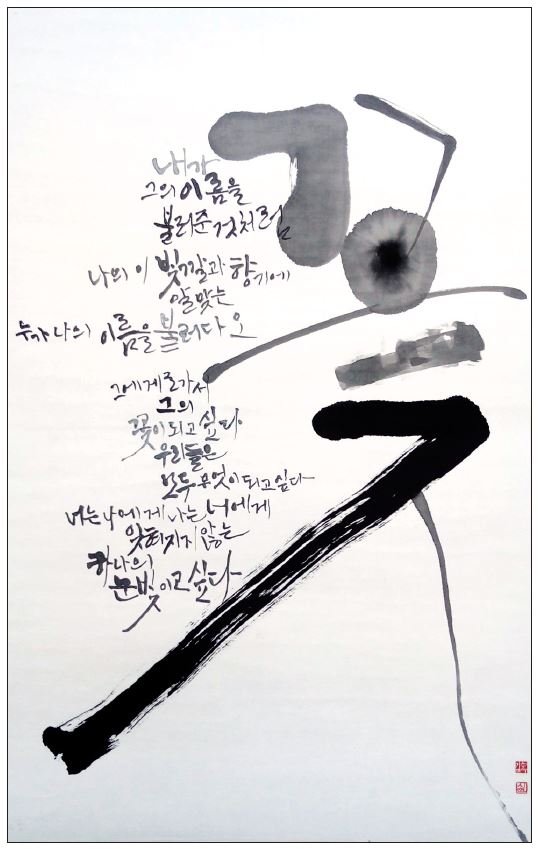 꽃
내가
그의 이름을
불러준 것처럼
나의 이 빛깔과 향기에
알맞는
누가 나의 이름을 불러다오
그에게로 가서
그의
꽃이 되고 싶다
우리들은
모두 무엇이 되고싶다
너는 나에게 나는 너에게
잊혀지지 않는
하나의
눈빛이고 싶다